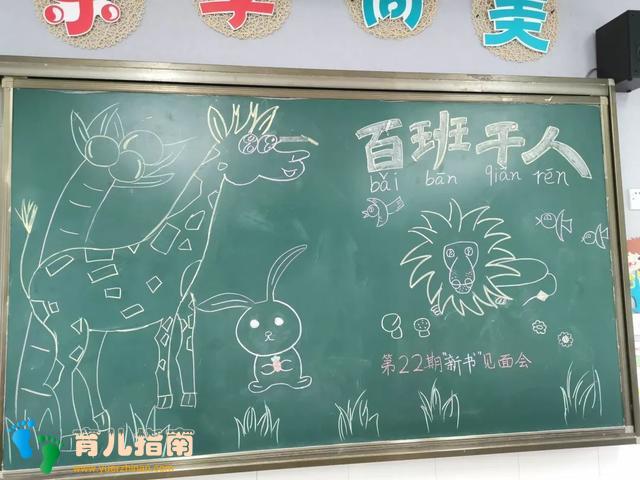 乐学尚美
百班千人
bǎi bān qiān rén
第22期"新书"见面会
育儿指南
www.yuerzhinan.com